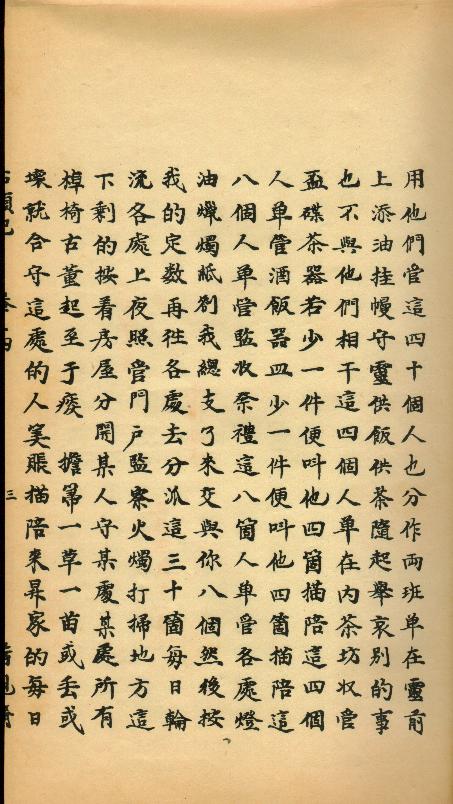 用他們管這四十個人也分作両班单在靈前
上添油挂幔守靈供飯供茶隨起舉哀别的事
也不與他們相干這四個人単在内茶坊収管
盃碟茶器若少一件便呌他四箇描陪這四個
人単管酒飯器皿少一件便呌他四箇描陪這
八個人単管監收祭禮這八箇人単管各處燈
油蠟燭紙劄我緫支了來交與你八個然後按
我的定数再徃各處去分派這三十箇每日輪
流各處上夜照管門户監察火燭打掃地方這
下剩的按看房屋分開某人守某處某處所有
棹椅古董起至于痰擔箒一草一苗或丢或
壞就合守這處的人筭賬描陪來昇家的每日
石頭記 卷十四 三